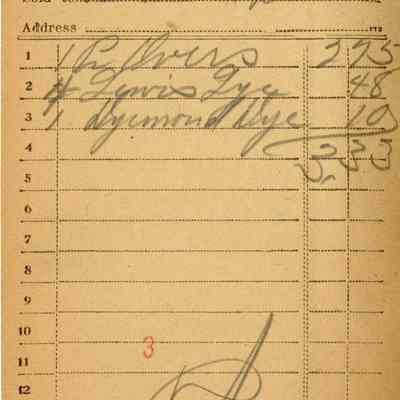 Address
1 1 Pr Overs 2 75
2 4 Lewis Lye 48
3 1 Dyemond Dye 10
4 3 33
5
6
7
8
9
10
3
11
12